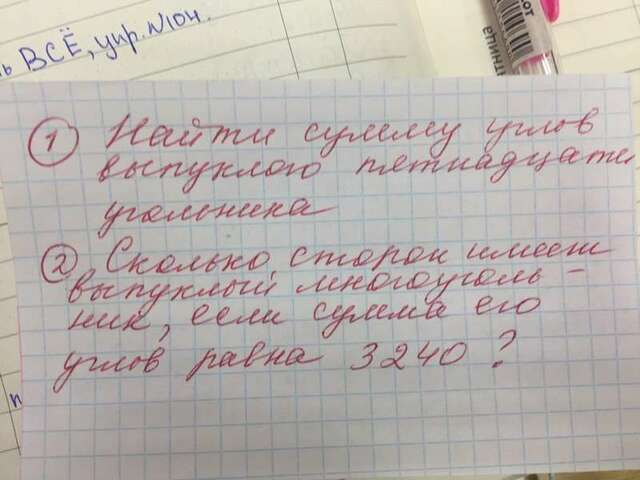 ВСЁ, упр. №104.
① Найти сумму углов
выпуклого пятнадцати
угольника
② Сколько сторон имеет
выпуклый многоуголь-
ник, если сумма его
углов равна 3240 ?